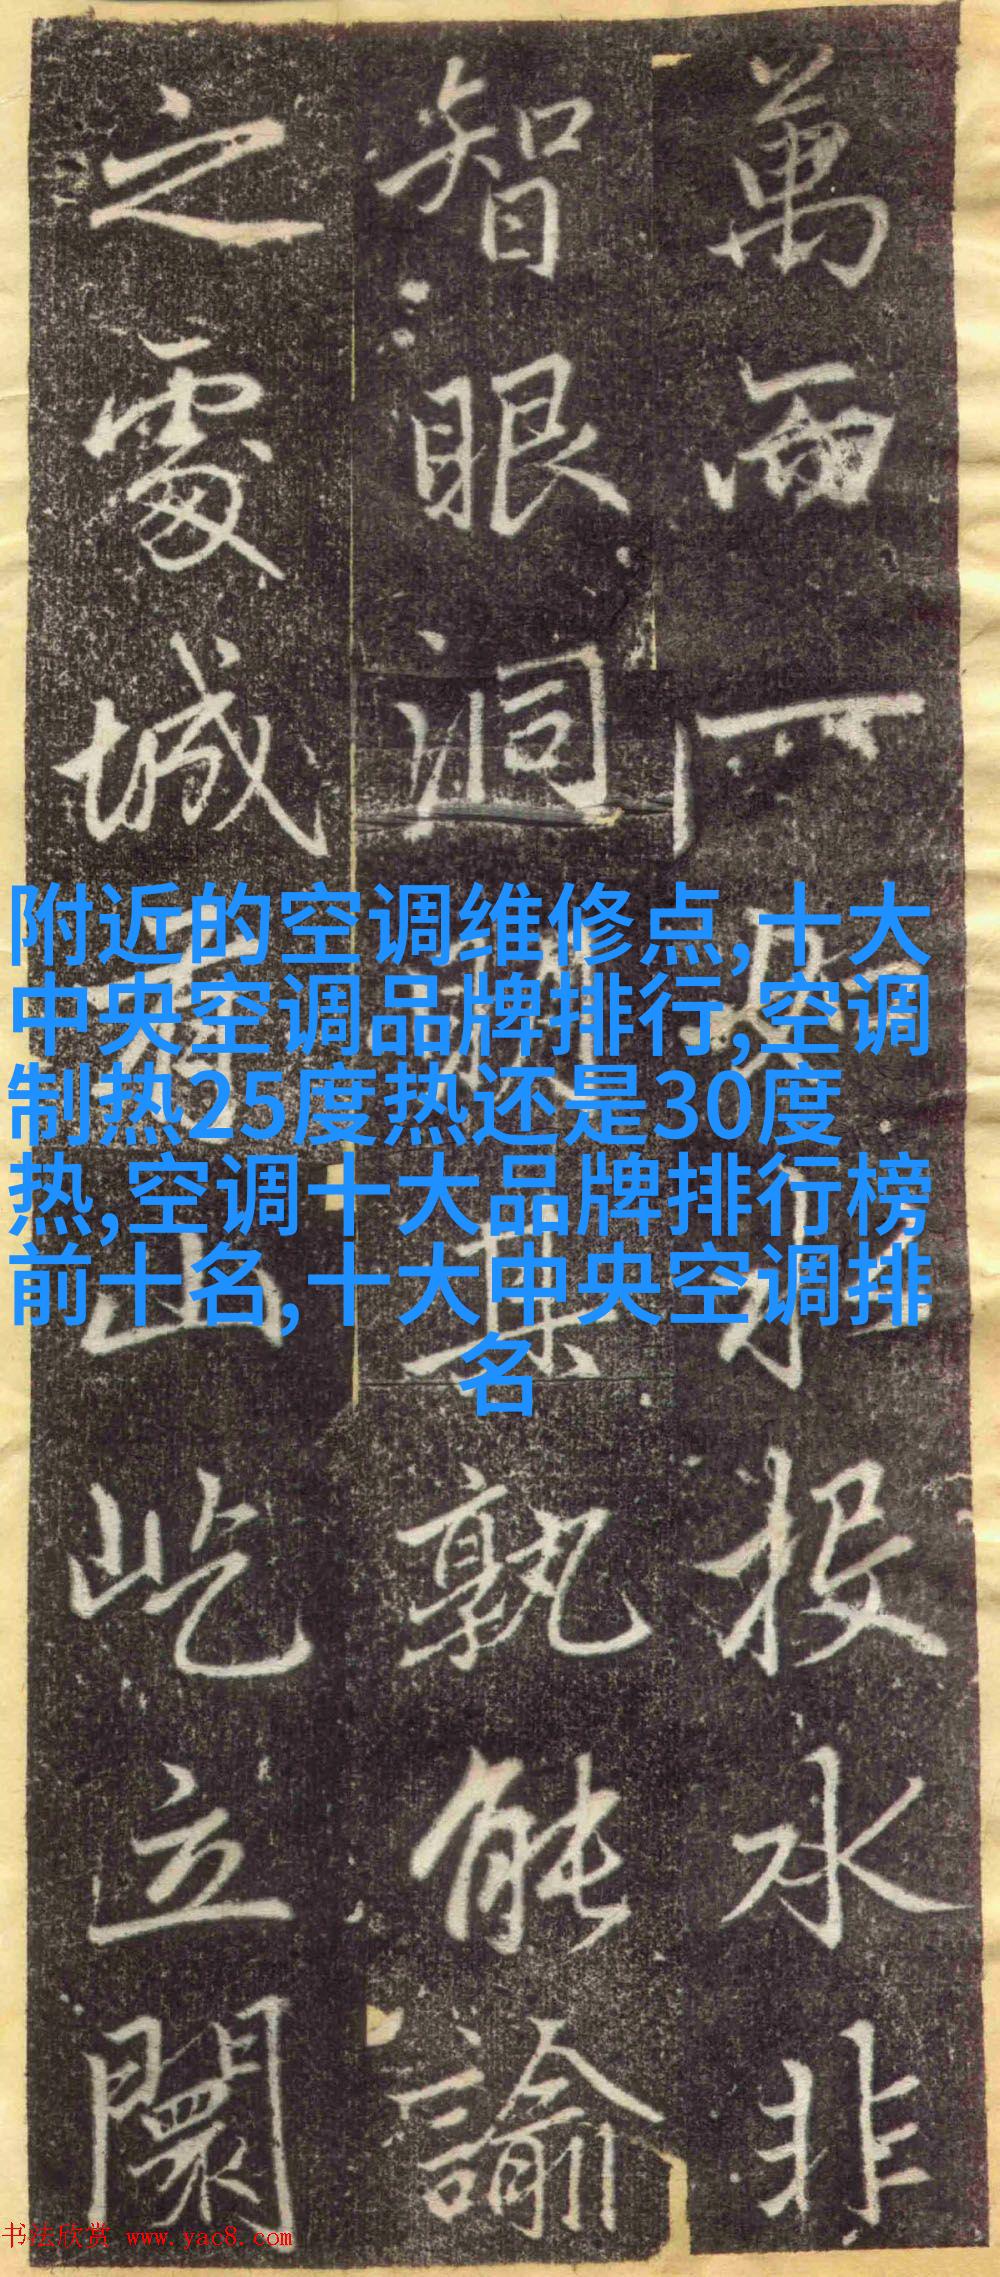 萬而一如水投水非
智眼洞其孰能諭
之處城山屹立闤
附近的空调维修点,十大
中央空调品牌排行,空调
制热25度热还是30度
热,空调十大品牌排行榜
前十名,十大中央空调排
名
书法欣赏 www.yac8.com